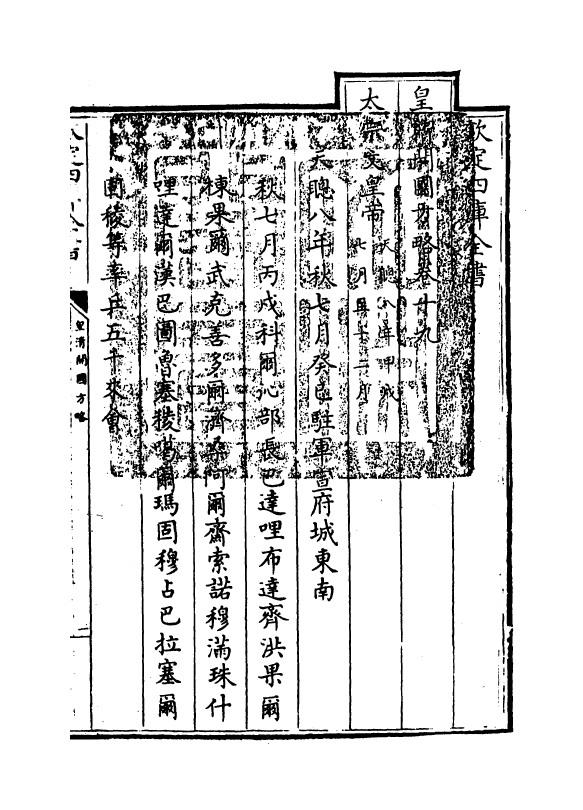 欽定四庫全書
皇清開國方略卷十九
太宗文皇帝天聰八年甲戌
七月至十二月
天聰八年秋七月癸巳駐軍宣府城東南
秋七月丙戌科爾沁部長巴達哩布達齊洪果爾
棟果爾武克善多爾濟桑阿爾齋索諾穆滿珠什
哩達爾漢巴圖魯塞稜噶爾瑪固穆占巴拉塞爾
圖稜等率兵五千來會
皇清開國方略